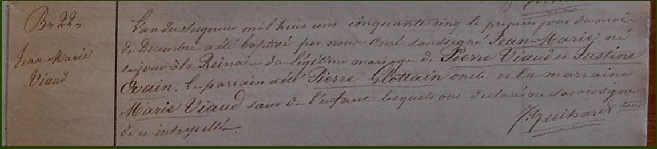 B. 22.
Jean Marie
Viaud
L'an du Seigneur mil huit cent cinquante cinq le premier jour du mois
de Decembre a été baptisé par nous Curé soussigné Jean-Marie né
ce jour à la Reinai du légitime mariage de Pierre Viaud et Justine
. Le parrain a été Pierre oncle et la marraine
Marie Viaud sœur de l'enfant lesquels ont déclaré ne savoir signer
de ce interpellés